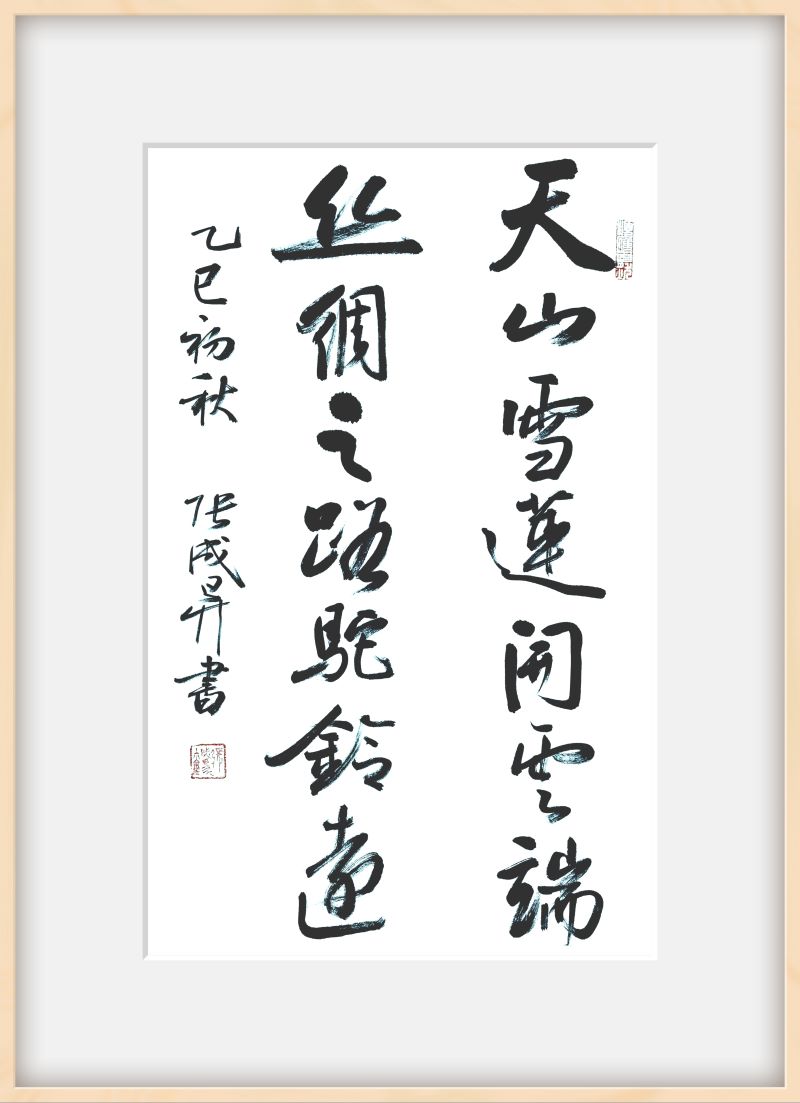 天山雪蓮開雲端
丝綢之路駝鈴遠
乙巳初秋 张成昇書